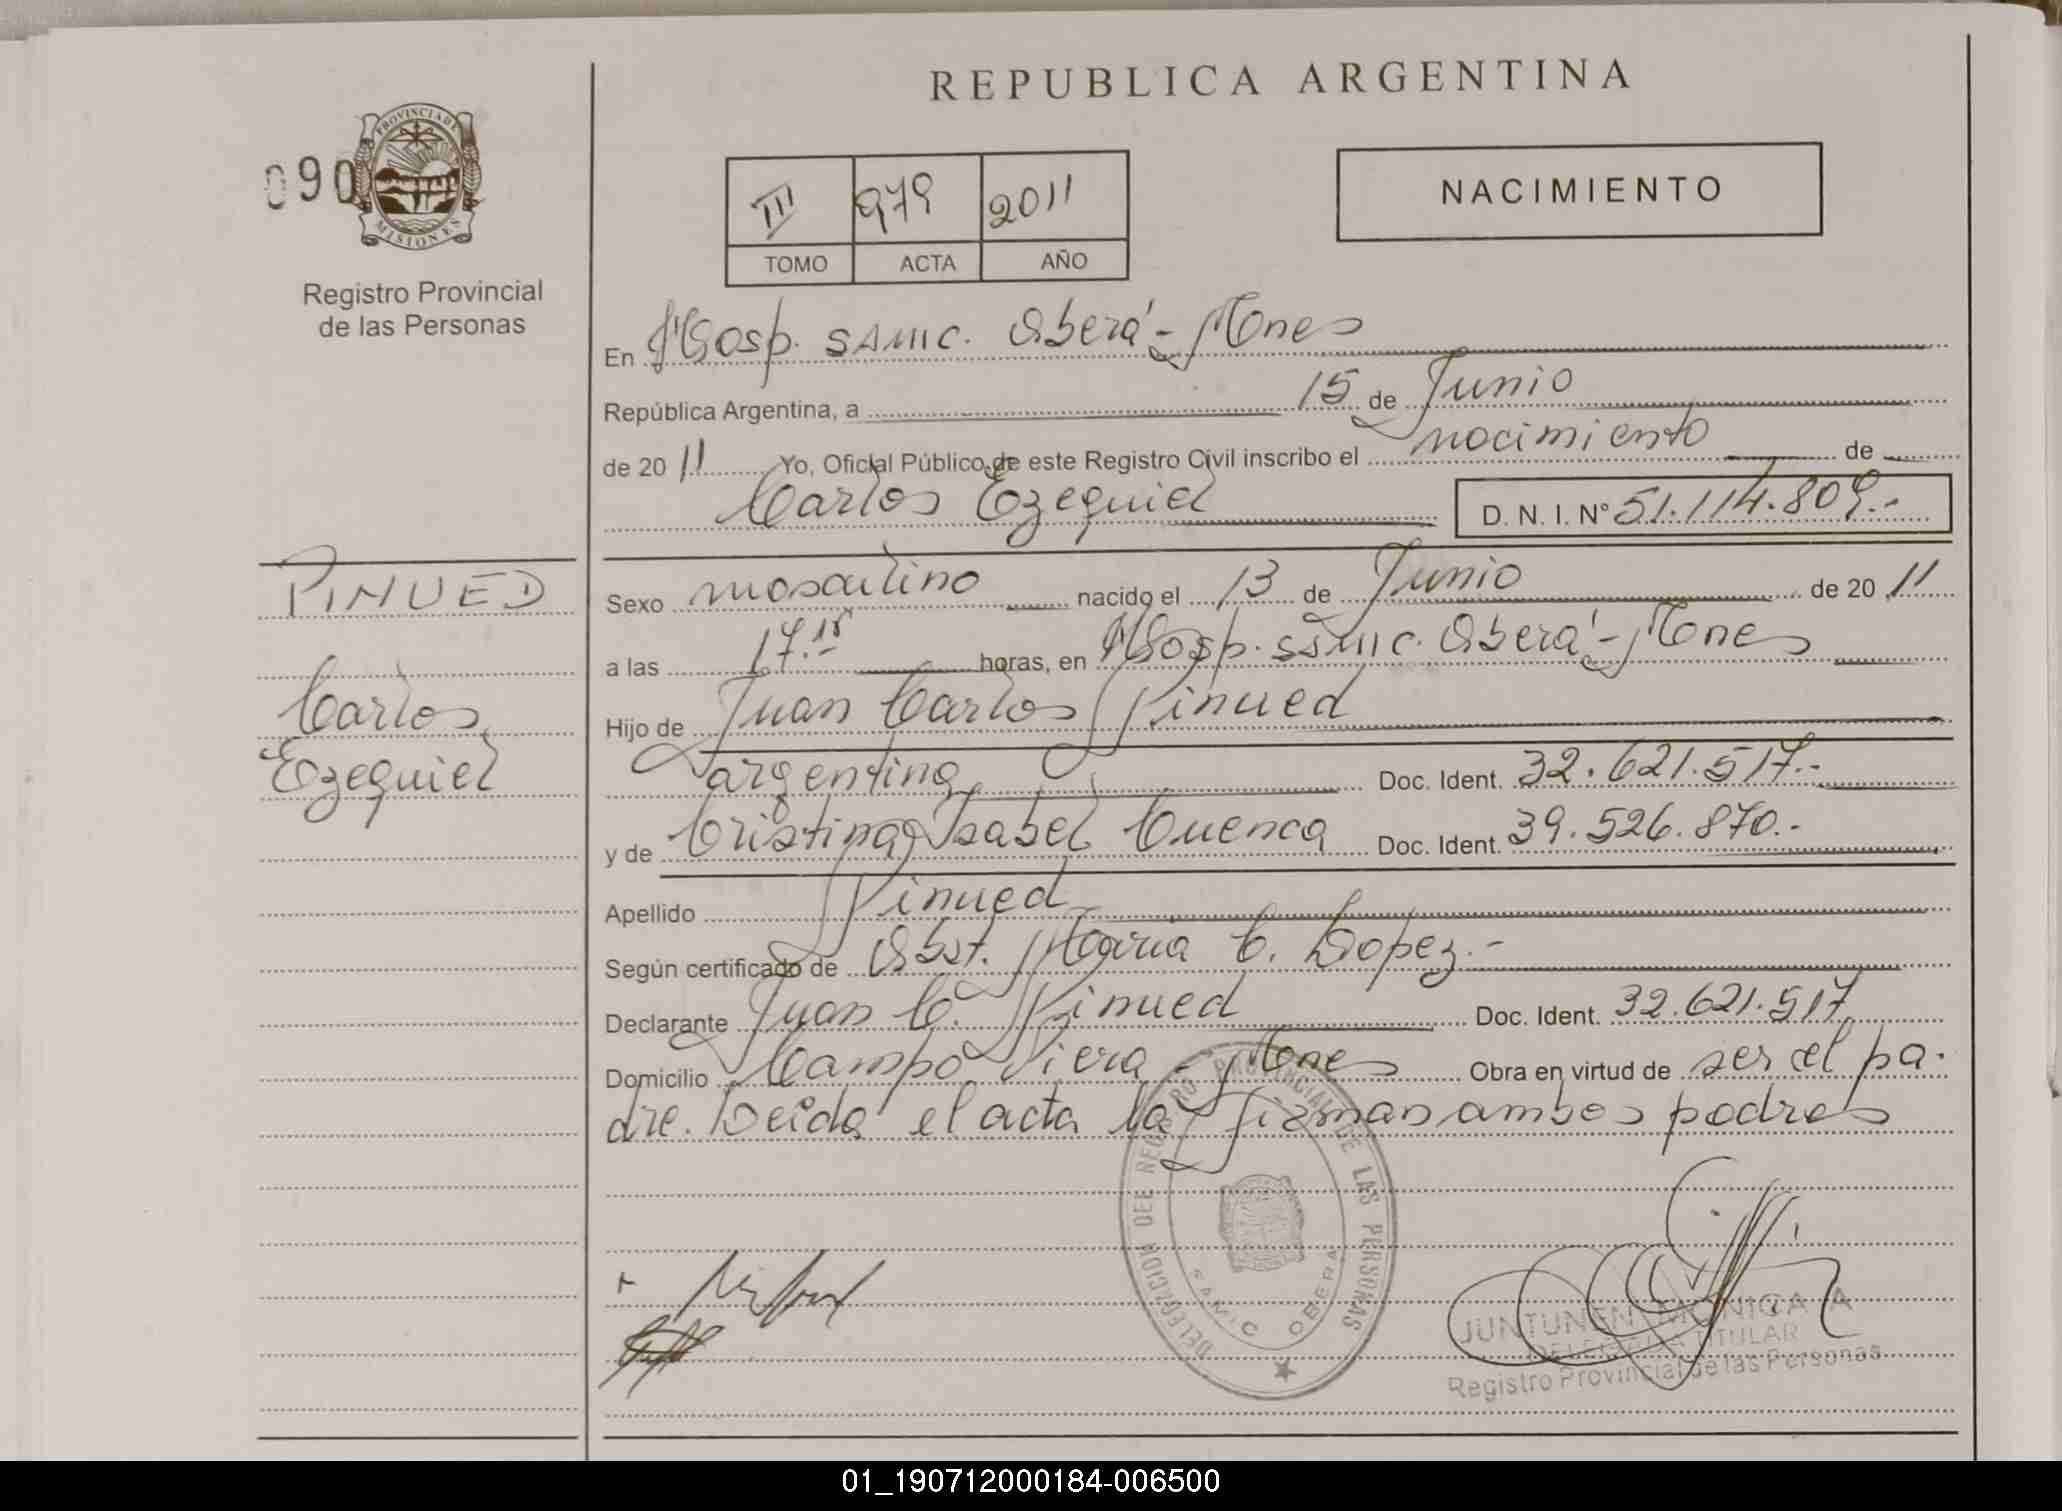 REPUBLICA ARGENTINA
090
PROVINCIA DE
MISIONES
Registro Provincial
de las Personas
III 979 2011
TOMO ACTA AÑO
NACIMIENTO
En Hosp. SAMIC. Oberá - Mnes
República Argentina, a 15 de Junio
de 20 11 Yo, Oficial Público de este Registro Civil inscribo el nacimiento de
Carlos Ezequiel D. N. I. N° 51.114.809.-
PINUED
Carlos
Ezequiel
Sexo masculino nacido el 13 de Junio de 20 11
a las 17.15 horas, en Hosp. SAMIC. Oberá - Mnes
Hijo de Juan Carlos Pinued
argentina Doc. Ident. 32.621.517.-
y de Cristina Isabel Cuenca Doc. Ident. 39.526.870.-
Apellido Pinued
Según certificado de Obst. Maria C. Lopez.-
Declarante Juan C. Pinued Doc. Ident. 32.621.517
Domicilio Campo Viera - Mnes Obra en virtud de ser el pa-
dre. Leida el acta la firman ambos padres
DELEGACION DEL REGISTRO PROVINCIAL DE LAS PERSONAS
SAMIC OBERA
JUNTUNEN MONICA A
DELEGADA TITULAR
Registro Provincial de las Personas
01_190712000184-006500